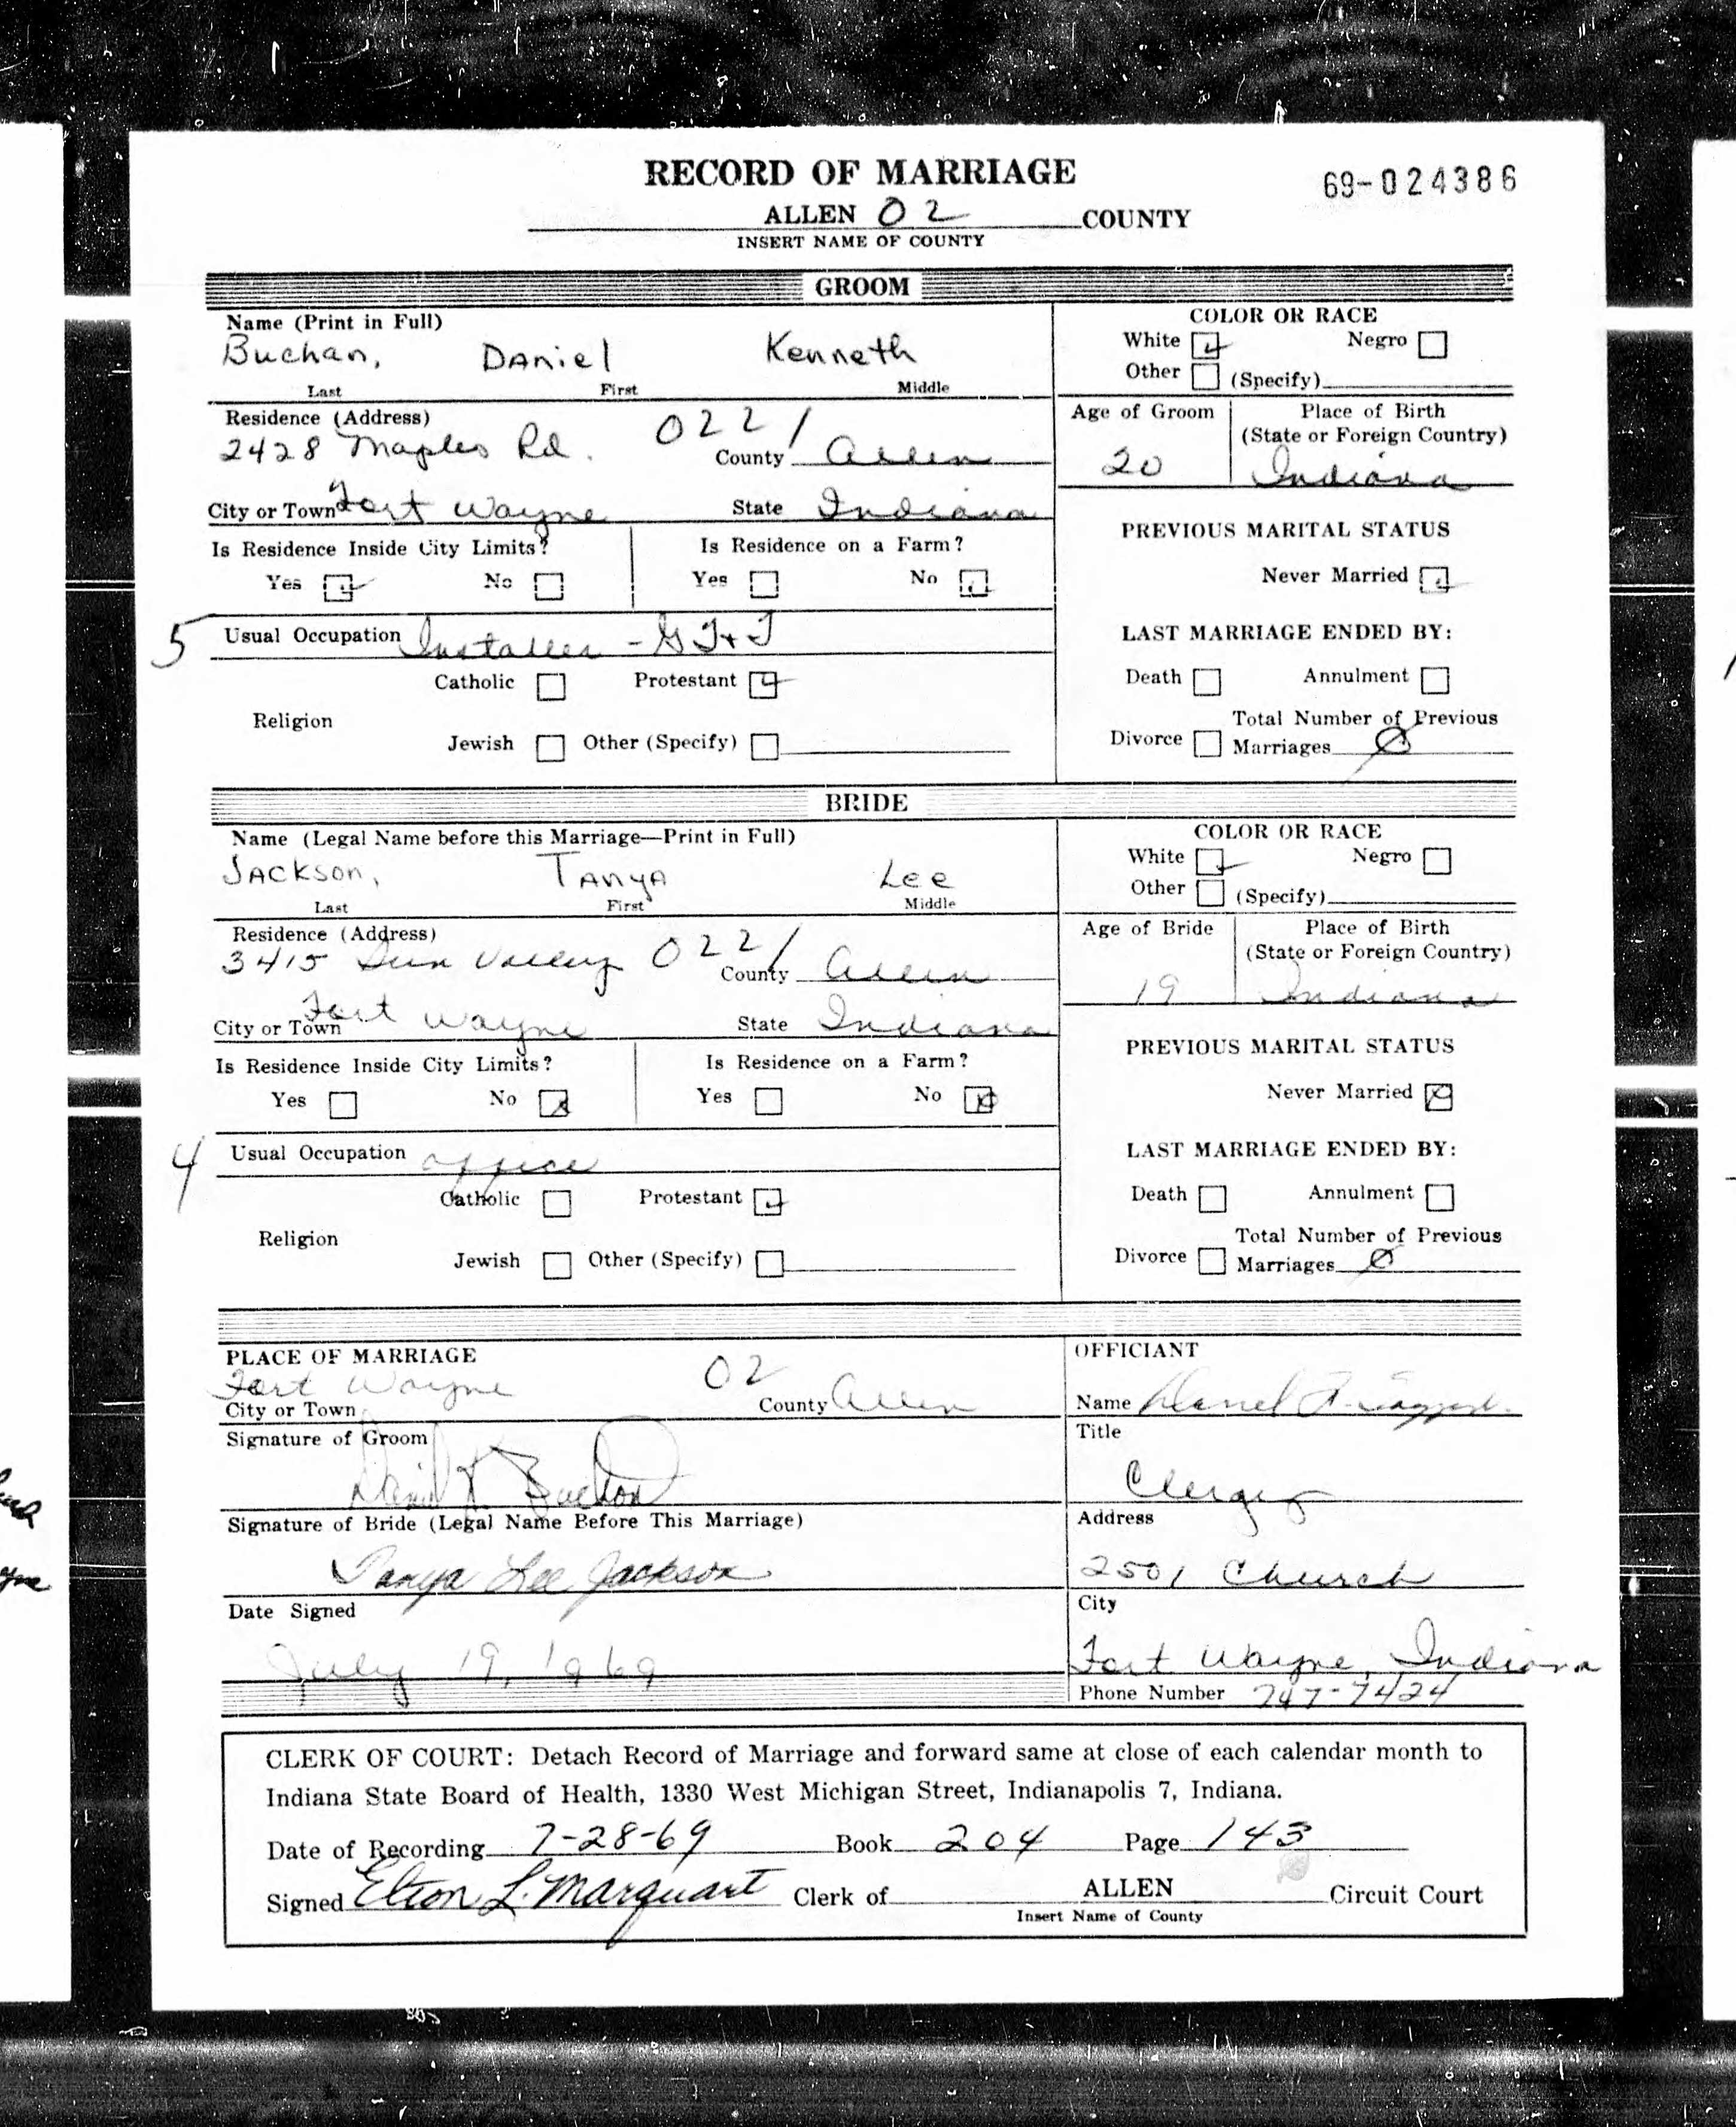 RECORD OF MARRIAGE
69-024386
ALLEN 02 COUNTY
INSERT NAME OF COUNTY
GROOM
Name (Print in Full)
Buchan, Daniel Kenneth
Last First Middle
COLOR OR RACE
White Negro
Other (Specify)
Residence (Address)
2428 Maples Rd. 0221
County Allen
City or Town Fort Wayne State Indiana
Age of Groom Place of Birth
(State or Foreign Country)
20 Indiana
Is Residence Inside City Limits? Is Residence on a Farm?
Yes No Yes No
PREVIOUS MARITAL STATUS
Never Married
5 Usual Occupation Installer - G T & T
LAST MARRIAGE ENDED BY:
Catholic Protestant
Religion
Jewish Other (Specify)
Death Annulment
Total Number of Previous
Divorce Marriages Ø
BRIDE
Name (Legal Name before this Marriage—Print in Full)
Jackson, Tanya Lee
Last First Middle
COLOR OR RACE
White Negro
Other (Specify)
Residence (Address)
3415 Sun Valley 0221
County Allen
City or Town Fort Wayne State Indiana
Age of Bride Place of Birth
(State or Foreign Country)
19 Indiana
Is Residence Inside City Limits? Is Residence on a Farm?
Yes No Yes No
PREVIOUS MARITAL STATUS
Never Married
4 Usual Occupation office
LAST MARRIAGE ENDED BY:
Catholic Protestant
Religion
Jewish Other (Specify)
Death Annulment
Total Number of Previous
Divorce Marriages Ø
PLACE OF MARRIAGE
Fort Wayne 02
City or Town County Allen
OFFICIANT
Name Daniel
Signature of Groom
Daniel K. Buchan
Title
Clergy
Signature of Bride (Legal Name Before This Marriage)
Tanya Lee Jackson
Address
2501 Church
Date Signed
July 19, 1969
City
Fort Wayne, Indiana
Phone Number 747-7424
CLERK OF COURT: Detach Record of Marriage and forward same at close of each calendar month to
Indiana State Board of Health, 1330 West Michigan Street, Indianapolis 7, Indiana.
Date of Recording 7-28-69 Book 204 Page 143
Signed Elton L. Marquart Clerk of ALLEN Circuit Court
Insert Name of County